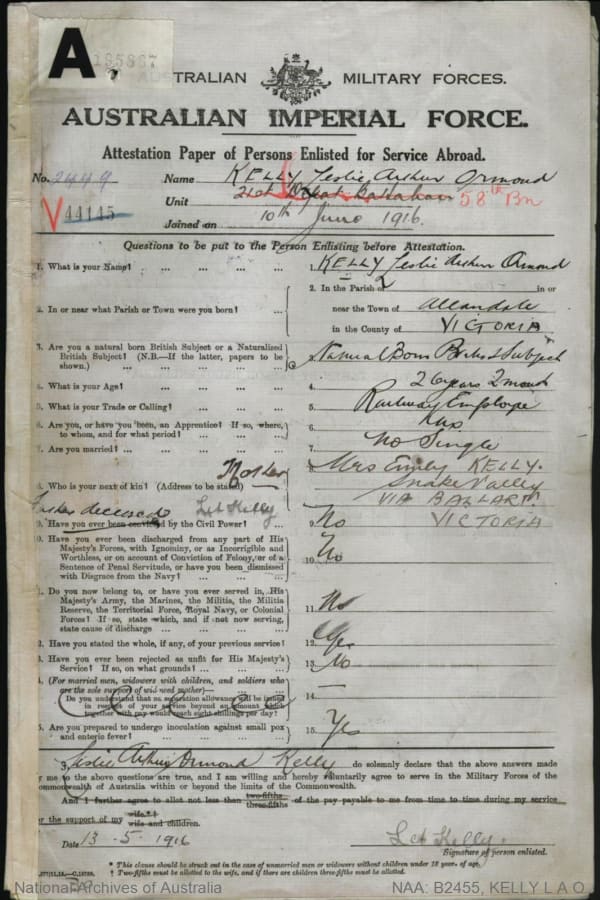 A
195867
AUSTRALIAN MILITARY FORCES.
AUSTRALIAN IMPERIAL FORCE.
Attestation Paper of Persons Enlisted for Service Abroad.
No. 2449 Name KELLY Leslie Arthur Ormond
V 44145 Unit 21st Depot Battalion 58th Bn
Joined on 10th June 1916.
Questions to be put to the Person Enlisting before Attestation.
1. What is your Name? ... ... ... ... 1. KELLY Leslie Arthur Ormond
2. In or near what Parish or Town were you born? ... ... 2. In the Parish of in or
near the Town of Allandale
in the County of VICTORIA
3. Are you a natural born British Subject or a Naturalized British Subject? (N.B.—If the latter, papers to be shown.) ... ... ... ... Natural Born British Subject
4. What is your Age? ... ... ... ... 4. 26 years 2 months
5. What is your Trade or Calling? ... ... ... 5. Railway Employe
6. Are you, or have you been, an Apprentice? If so, where, to whom, and for what period? ... ... ... 6. No
7. Are you married? ... ... ... ... 7. No Single
8. Who is your next of kin? (Address to be stated) ... Mother Mrs Emily KELLY.
Snake Valley
VIA BALLARAT
VICTORIA
Father deceased Les Kelly
9. Have you ever been convicted by the Civil Power? ... 9. No
10. Have you ever been discharged from any part of His Majesty's Forces, with Ignominy, or as Incorrigible and Worthless, or on account of Conviction of Felony, or of a Sentence of Penal Servitude, or have you been dismissed with Disgrace from the Navy? ... ... ... 10. No
11. Do you now belong to, or have you ever served in, His Majesty's Army, the Marines, the Militia, the Militia Reserve, the Territorial Force, Royal Navy, or Colonial Forces? If so, state which, and if not now serving, state cause of discharge ... ... ... 11. No
12. Have you stated the whole, if any, of your previous service? 12. Yes
13. Have you ever been rejected as unfit for His Majesty's Service? If so, on what grounds? ... ... 13. No
14. (For married men, widowers with children, and soldiers who are the sole support of widowed mother)—
Do you understand that no separation allowance will be issued in respect of your service beyond an amount which together with pay would reach eight shillings per day? 14. —
15. Are you prepared to undergo inoculation against small pox and enteric fever? ... ... ... 15. Yes
I, Leslie Arthur Ormond Kelly do solemnly declare that the above answers made
by me to the above questions are true, and I am willing and hereby voluntarily agree to serve in the Military Forces of the
Commonwealth of Australia within or beyond the limits of the Commonwealth.
And I further agree to allot not less than two-fifths three-fifths of the pay payable to me from time to time during my service
for the support of my wife.*† wife and children.
Date 13-5-1916 Les Kelly.
Signature of person enlisted.
* This clause should be struck out in the case of unmarried men or widowers without children under 18 years of age.
† Two-fifths must be allotted to the wife, and if there are children three-fifths must be allotted.
National Archives of Australia NAA: B2455, KELLY L A O